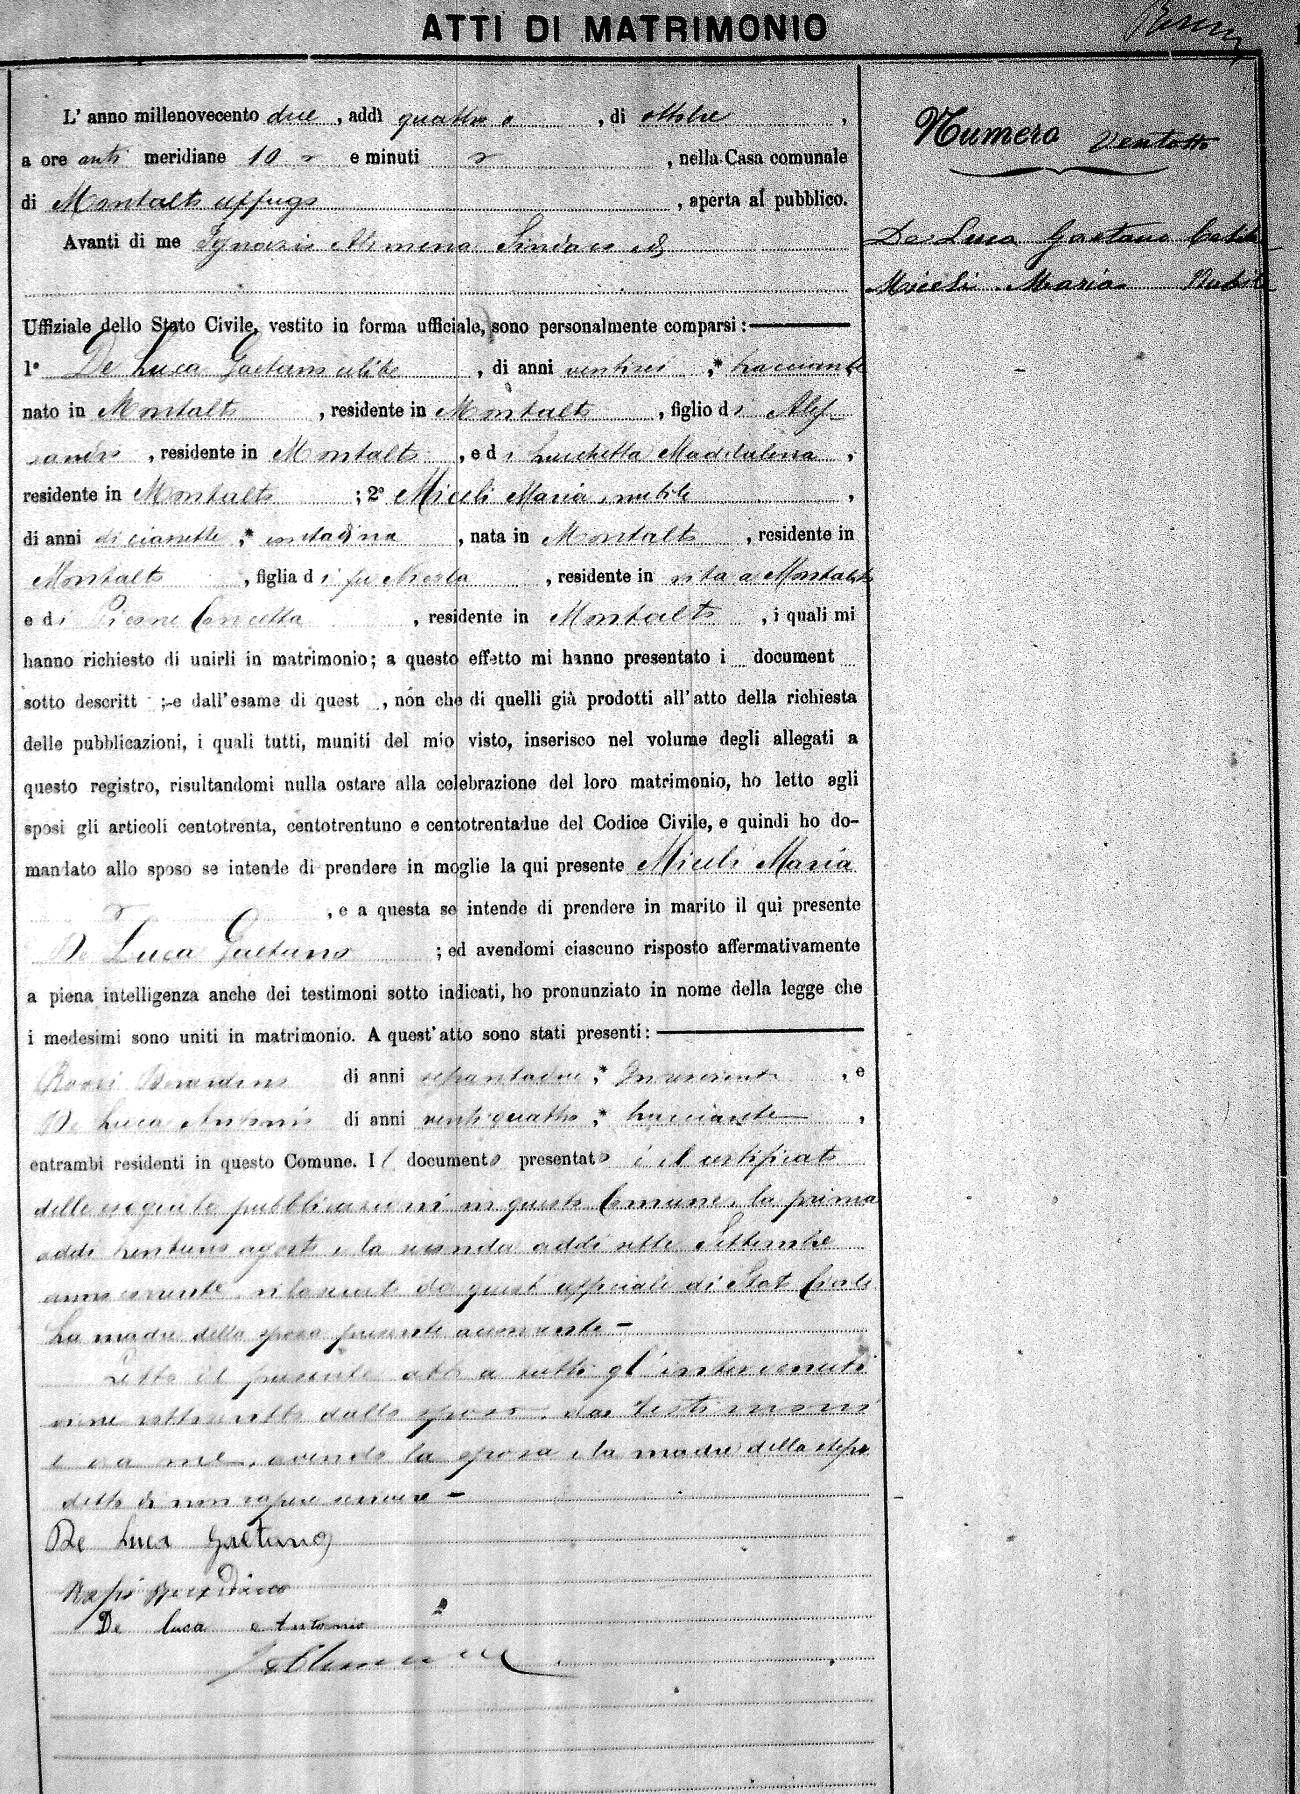 ATTI DI MATRIMONIO
Numero Ventotto
De Luca Gaetano Celibe
Miceli Maria Nubile
L' anno millenovecento due, addì quattro, di ottobre,
a ore anti meridiane 10 e minuti, nella Casa comunale
di Montalto uffugo, aperta al pubblico.
Avanti di me Ignazio Alimena Sindaco ed
Uffiziale dello Stato Civile, vestito in forma ufficiale, sono personalmente comparsi:
1° De Luca Gaetano celibe, di anni ventisei, * bracciante
nato in Montalto, residente in Montalto, figlio di Ales-
sandro, residente in Montalto, e di Luchetta Maddalena,
residente in Montalto; 2° Miceli Maria, nubile,
di anni diciasette, * contadina, nata in Montalto, residente in
Montalto, figlia di fu Nicola, residente in vita a Montalto
e di Concetta, residente in Montalto, i quali mi
hanno richiesto di unirli in matrimonio; a questo effetto mi hanno presentato i document
sotto descritt ; e dall'esame di quest , non che di quelli già prodotti all'atto della richiesta
delle pubblicazioni, i quali tutti, muniti del mio visto, inserisco nel volume degli allegati a
questo registro, risultandomi nulla ostare alla celebrazione del loro matrimonio, ho letto agli
sposi gli articoli centotrenta, centotrentuno e centotrentadue del Codice Civile, e quindi ho do-
mandato allo sposo se intende di prendere in moglie la qui presente Miceli Maria
, e a questa se intende di prendere in marito il qui presente
De Luca Gaetano; ed avendomi ciascuno risposto affermativamente
a piena intelligenza anche dei testimoni sotto indicati, ho pronunziato in nome della legge che
i medesimi sono uniti in matrimonio. A quest'atto sono stati presenti:
di anni settantadue, * , e
De Luca Antonio di anni ventiquattro, * bracciante,
entrambi residenti in questo Comune. Il documento presentato è il certificato
delle eseguite pubblicazioni in questo Comune, la prima
addì trentuno agosto e la seconda addì sette Settembre
anno corrente, rilasciato da quest'officiale di Stato Civile
La madre della sposa presente acconsente -
Letto il presente atto a tutti gl'intervenuti
viene sottoscritto dallo sposo, dai testimoni
e da me, avendo la sposa e la madre della stessa
detto di non sapere scrivere -
De Luca Gaetano
De Luca Antonio